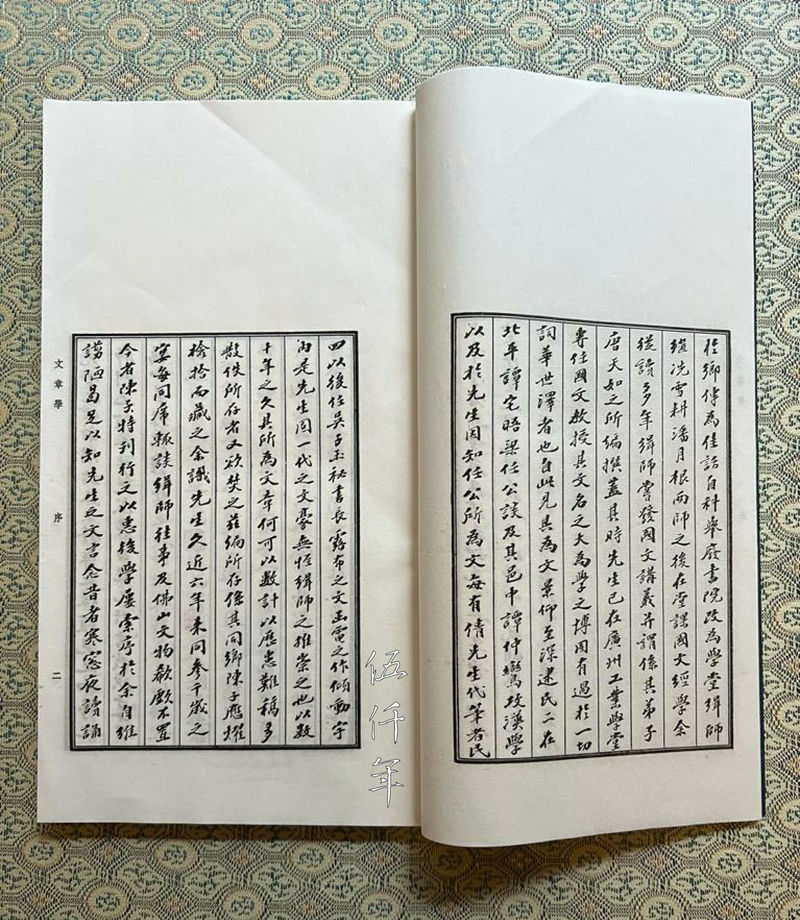 於鄉傳為佳話自科舉廢書院改為學堂緝師
繼冼雪耕潘月根兩師之後在堂課國文經學余
從讀多年緝師嘗發國文講義并謂係其弟子
唐天如之所編撰蓋其時先生已在廣州工業學堂
專任國文教授其文名之大為學之博固有過於一切
詞華世澤者也自此見其為文景仰至深逮民二在
北平譚宅晤梁任公談及其邑中譚仲鸞攻漢學
以及於先生因知任公所為文每有倩先生代筆者民
四以後任吳子玉祕書長露布之文出電之作傾動宇
內是先生固一代之文豪無怪緝師之推崇之也以數
十年之久其所為文章何可以數計以歷患難稿多
散佚所存者又欲焚之茲編所存係其同鄉陳子應燿
檢拾而藏之余識先生久近六年來同參千歲之
宴每同席輒談緝師往事及佛山文物欷歔不置
今者陳子將刊行之以惠後學屢索序於余自維
謭陋曷足以知先生之文言念昔者寒窗夜讀誦
文章學
序
二
伍仟年